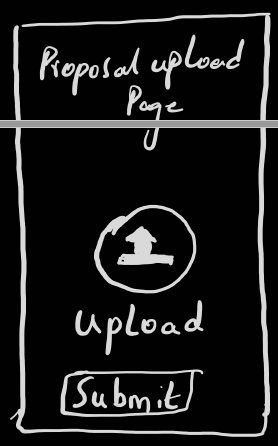 Proposal upload
Page
Upload
Submit